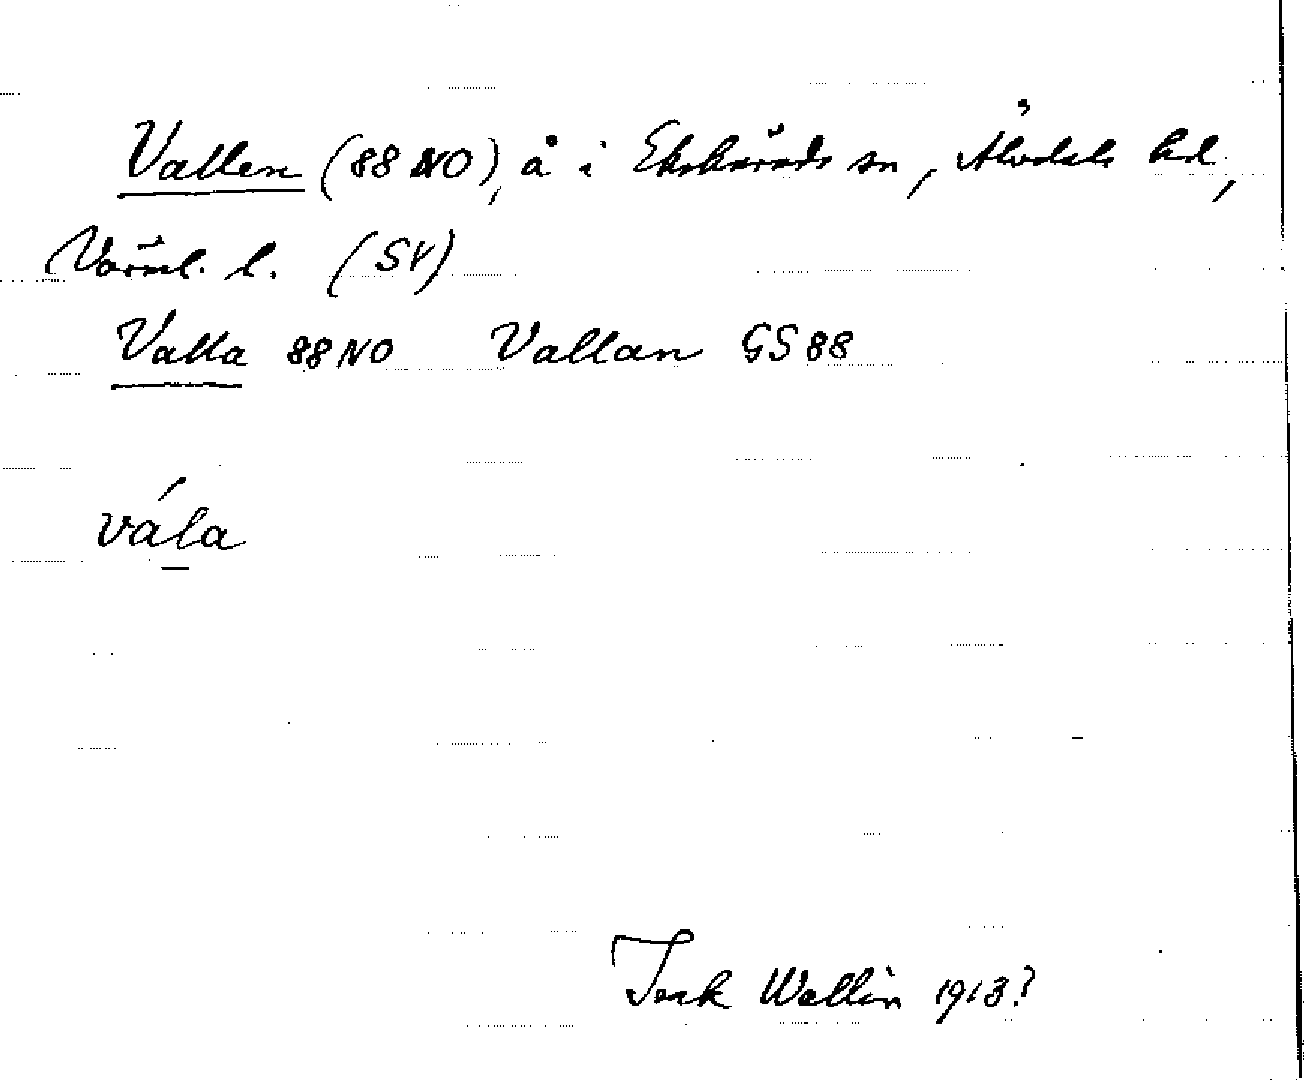 Vallen (88 NO), å i Ekshärads sn, Älvdals hd,
Värml. l. (SV)
Valla 88 NO Vallan GS 88
vála
Wallin 1913?